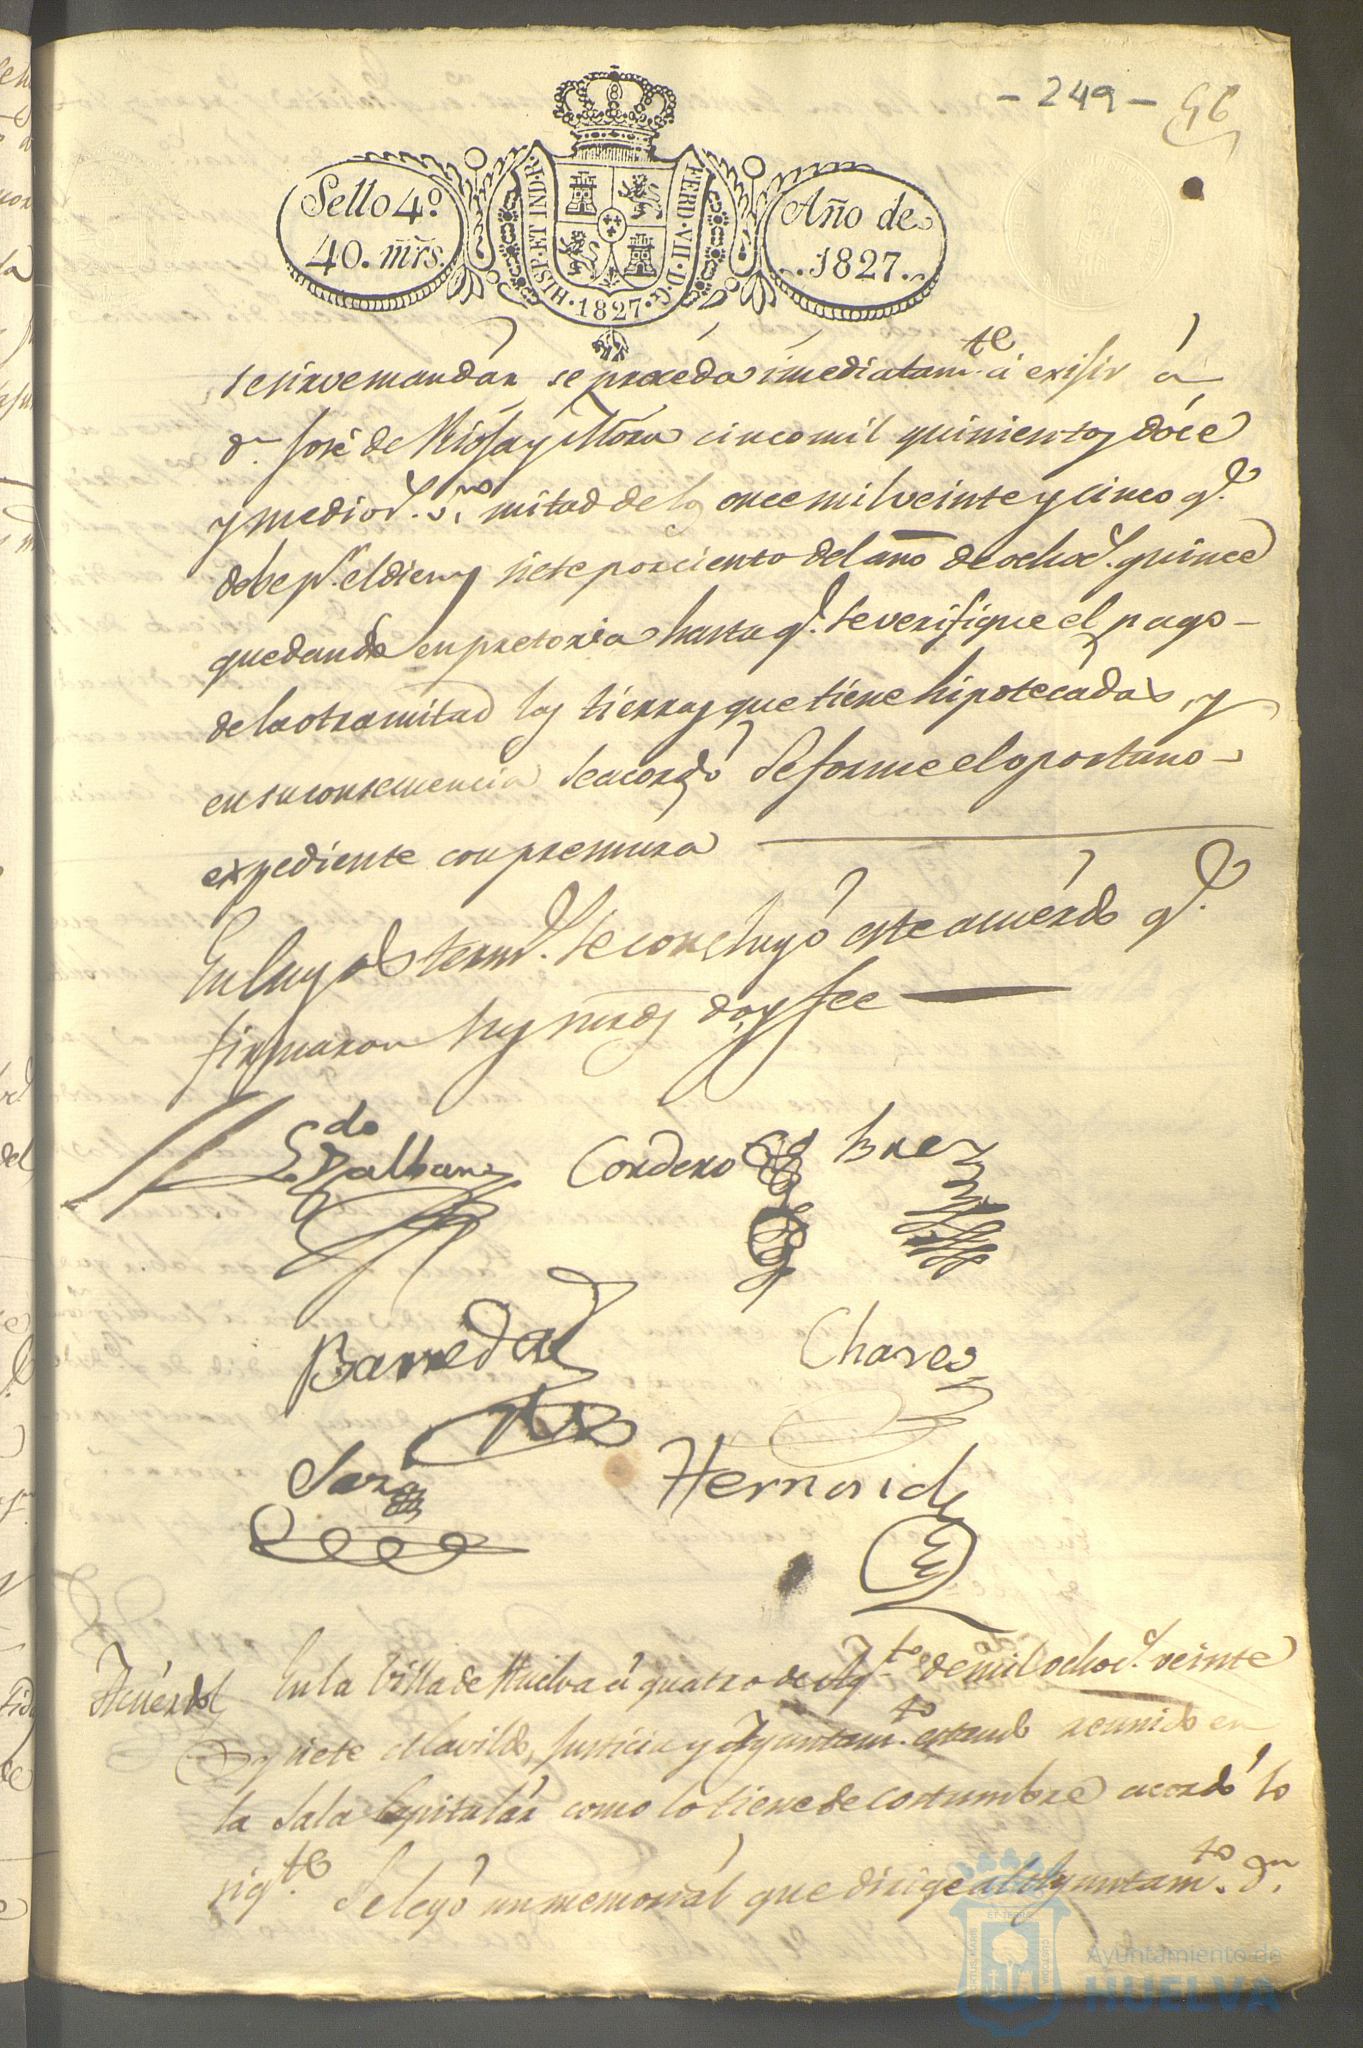 - 249 -
Sello 4º
40. mrs.
HISP. ET IND. R.
FERD. VII. D. G.
1827
Año de
1827.
se sirve mandar se proceda imediatam.te á exijir á
Dn. José de Riosa y Mora cinco mil quinientos dóce
y medio r.s v.on mitad de los once mil veinte y cinco q.e
debe p.r el diez y siete por ciento del año de ochoc.s quince
quedando en pretoria hasta q.e se verifique el pago
de la otra mitad las tierras que tiene hipotecádas, y
en su consecuencia se acordó se forme el oportuno
expediente con premura
En cuyos term.s se concluyó este acuérdo q.e
firmaron sus mrds doy fee
L.do Dalbani Cordero
Barreda Chaves
Saxa
Acuérdo En la Villa de Huelva á quatro de Ag.to de mil ochoc.s veinte
y siete el Cavildo, Justicia y Ayuntam.to estando reunido en
la Sala Capitulár como lo tiene de costumbre acordó lo
sig.te Se leyó un memorial que dirige al Ayuntam.to Dn.
Ayuntamiento de
HUELVA